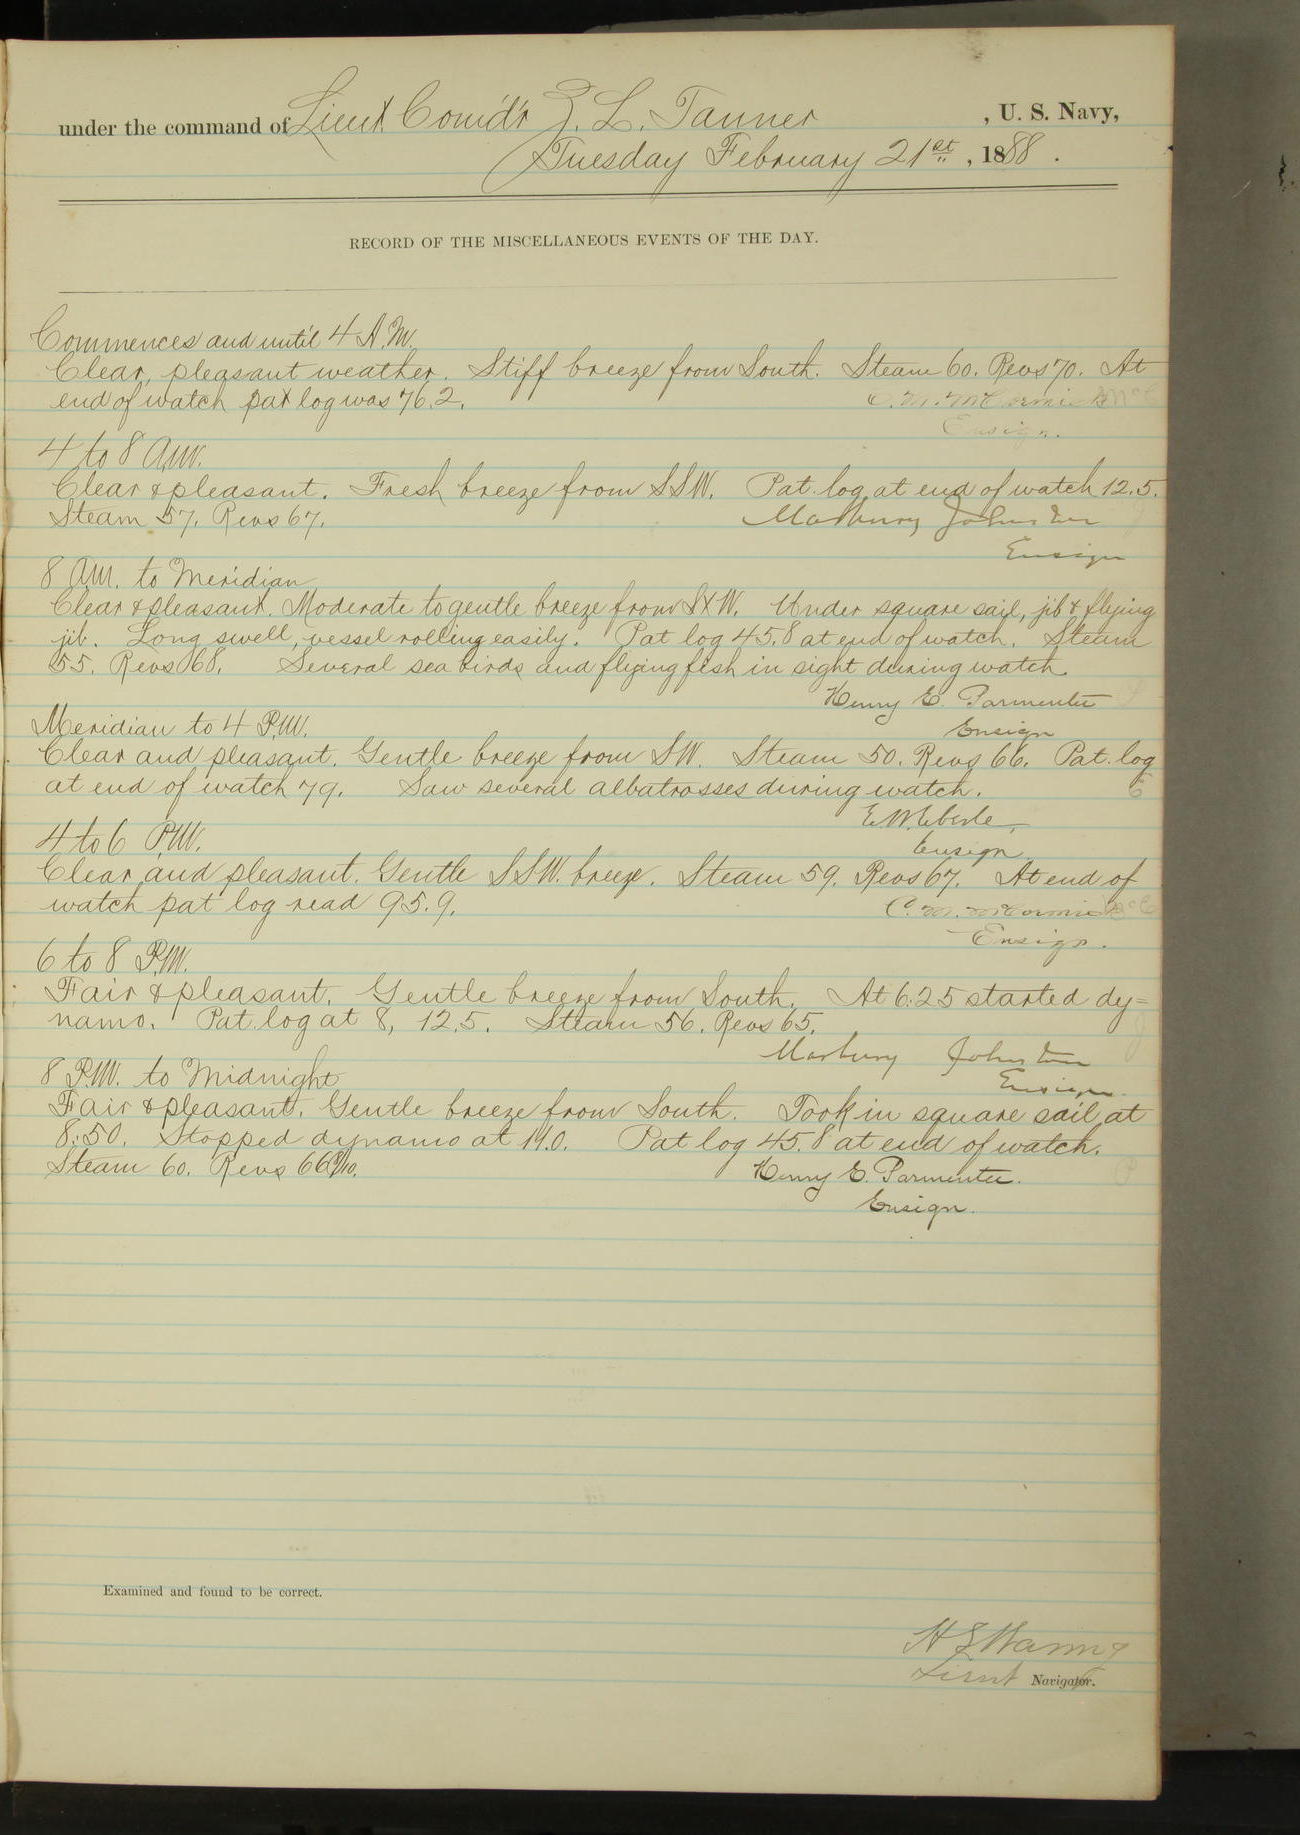 under the command of Lieut. Comd'r Z. L. Tanner, U. S. Navy,
Tuesday February 21st, 1888.
RECORD OF THE MISCELLANEOUS EVENTS OF THE DAY.
Commences and until 4 A.M.
Clear, pleasant weather. Stiff breeze from South. Steam 60. Revs 70. At
end of watch pat log was 76.2. C. M. McCormick
Ensign.
4 to 8 A.M.
Clear & pleasant. Fresh breeze from SSW. Pat. log at end of watch 12.5.
Steam 57. Revs 67. Marbury Johnston
Ensign
8 A.M. to Meridian
Clear & pleasant. Moderate to gentle breeze from SxW. Under square sail, jib & flying
jib. Long swell, vessel rolling easily. Pat log 45.8 at end of watch. Steam
55. Revs 68. Several sea birds and flying fish in sight during watch.
Henry E. Parmenter
Ensign
Meridian to 4 P.M.
Clear and pleasant. Gentle breeze from SW. Steam 50. Revs 66. Pat. log
at end of watch 79. Saw several albatrosses during watch.
E. W. Eberle,
Ensign
4 to 6 P.M.
Clear and pleasant. Gentle SSW. breeze. Steam 59. Revs 67. At end of
watch pat log read 95.9. C. M. McCormick
Ensign.
6 to 8 P.M.
Fair & pleasant. Gentle breeze from South. At 6:25 started dy=
namo. Pat. log at 8, 12.5. Steam 56. Revs 65.
Marbury Johnston
Ensign.
8 P.M. to Midnight
Fair & pleasant. Gentle breeze from South. Took in square sail at
8:50. Stopped dynamo at 11.0. Pat log 45.8 at end of watch.
Steam 60. Revs 66 9/10. Henry E. Parmenter.
Ensign.
Examined and found to be correct.
H S Waring
Lieut Navigator.